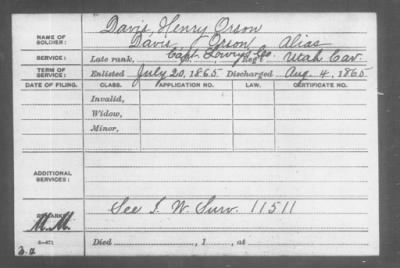 NAME OF SOLDIER: Davis, Henry Orson
Davis, Orson Alias
SERVICE: Late rank, Capt. Lowry's Co. Reg't Utah Cav.
TERM OF SERVICE: Enlisted July 20, 1865 Discharged Aug. 4, 1865
DATE OF FILING. CLASS. APPLICATION NO. LAW. CERTIFICATE NO.
Invalid,
Widow,
Minor,
ADDITIONAL SERVICES:
REMARKS: See I. W. Surv. 11511
M.M.
3-471
Died , 1 , at